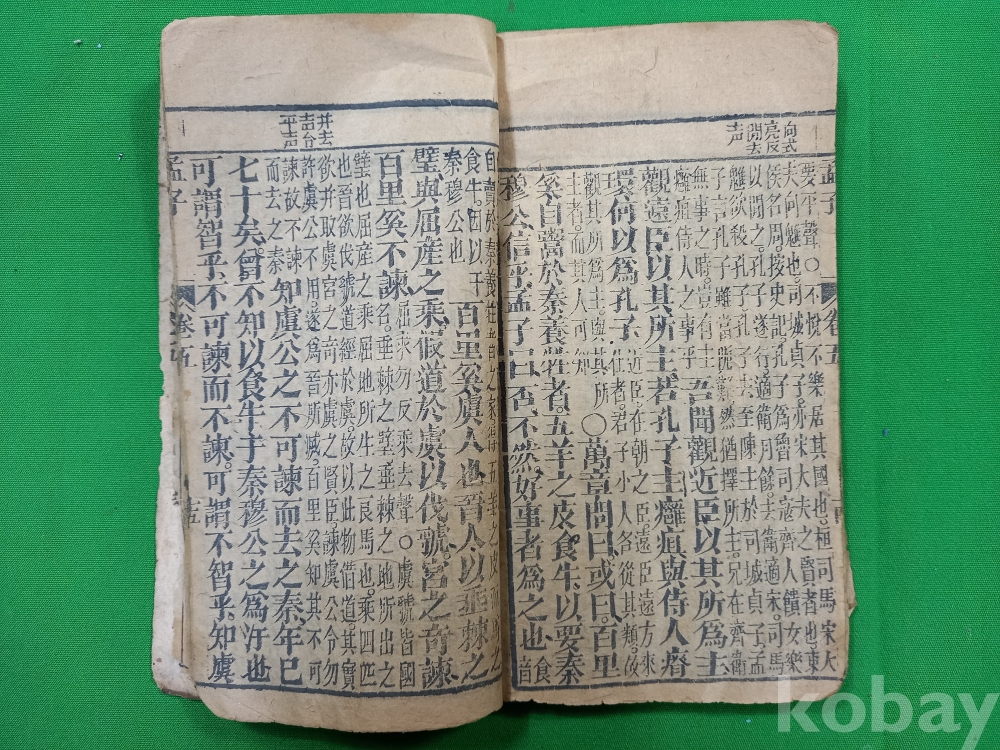 向式
亮反
閒去
声
孟子 卷五
要平聲○不悅不樂居其國也桓司馬宋大
夫向魋也司城貞子亦宋大夫之賢者也陳
侯名周按史記孔子爲魯司寇齊人饋女樂
以閒之孔子遂行適衛月餘去衛適宋司馬
魋欲殺孔子孔子去至陳主於司城貞子孟
子言孔子雖當阨難然猶擇所主況在齊衛
無事之時豈有主
癰疽侍人之事乎
吾聞觀近臣以其所爲主
觀遠臣以其所主若孔子主癰疽與侍人瘠
環何以爲孔子
近臣在朝之臣遠臣遠方來
仕者君子小人各從其類故
觀其所爲主與其所
主者而其人可知
○萬章問曰或曰百里
奚自鬻於秦養牲者五羊之皮食牛以要秦
穆公信乎孟子曰否不然好事者爲之也
食音
并去
声合
平声
自賣於秦養牲者之家得五羊之皮
食牛因以干
秦穆公也
百里奚虞人也晉人以垂棘之
璧與屈產之乘假道於虞以伐虢宮之奇諫
百里奚不諫
屈求勿反乘去聲○虞虢皆國
名垂棘之璧垂棘之地所出之
璧也屈產之乘屈地所生之良馬也乘四匹
也晉欲伐虢道經於虞故以此物借道其實
欲并取虞宮之奇亦虞之賢臣諫虞公令勿
許虞公不用遂爲晉所滅百里奚知其不可
諫故不諫
而去之秦
知虞公之不可諫而去之秦年已
七十矣曾不知以食牛于秦穆公之爲汙也
可謂智乎不可諫而不諫可謂不智乎知虞
孟子 卷五 五
kobay